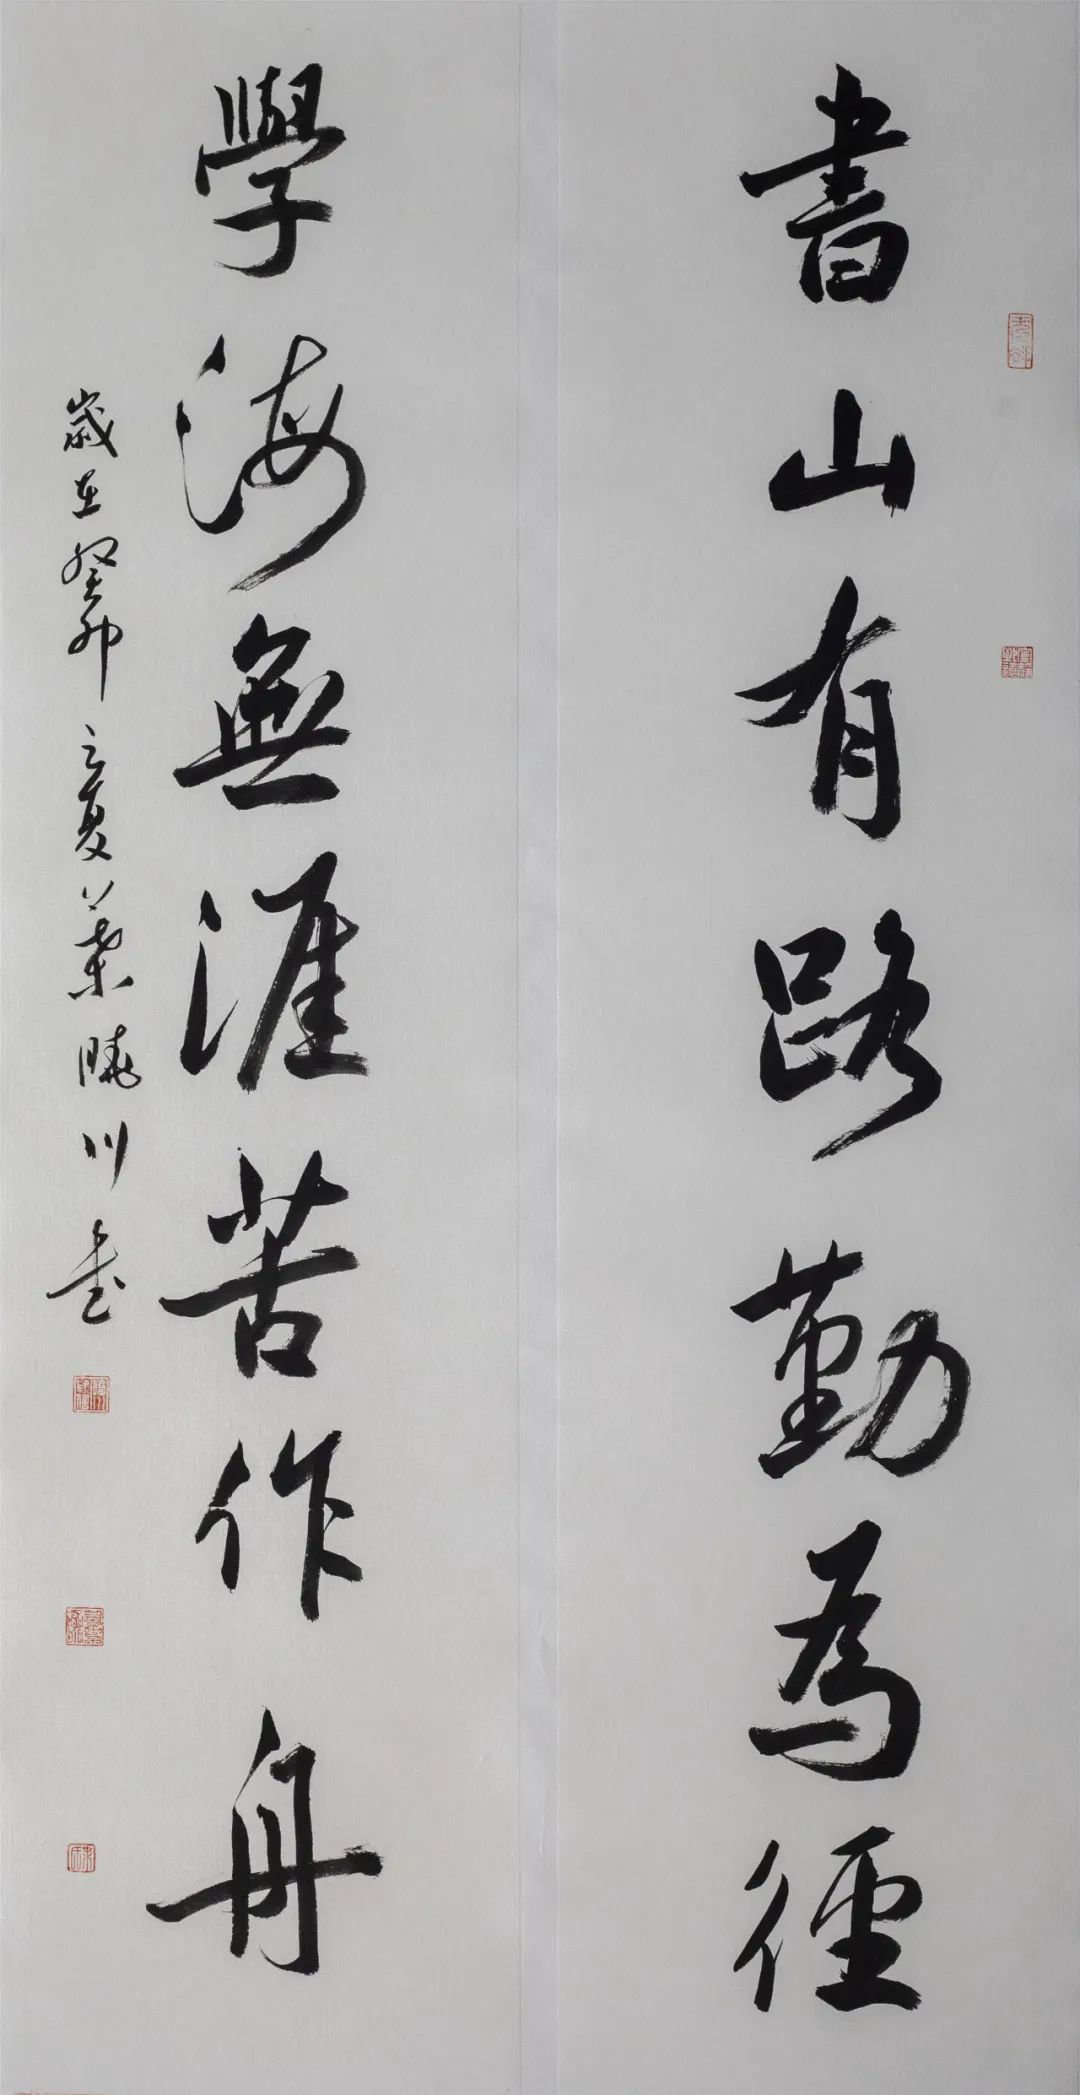 書山有路勤為徑
學海無涯苦作舟
歲在癸卯立夏葉曉川書